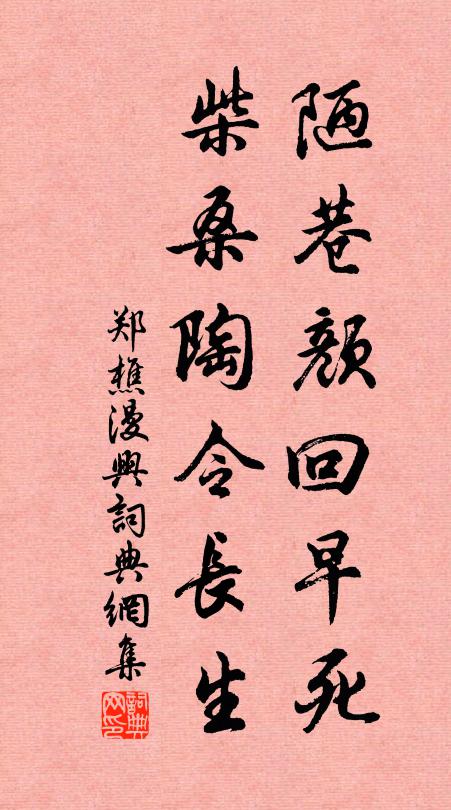 陋巷顔回早死
柴桑陶令長生
郑樵漫興詞典網集
詞典网印